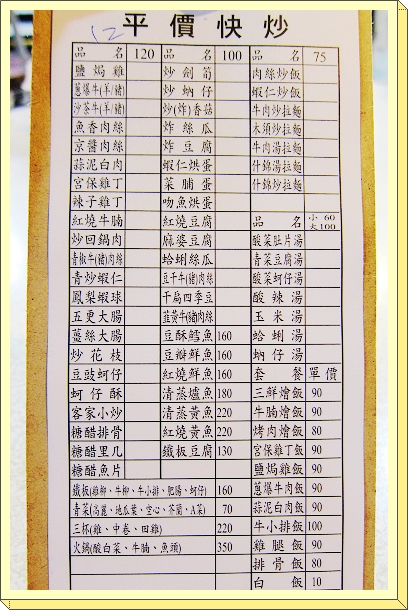 12
平價快炒
品名 120 品名 100 品名 75
鹽焗雞 炒劍筍 肉絲炒飯
蔥爆牛(羊/豬) 炒蚋仔 蝦仁炒飯
沙茶牛(羊/豬) 炒(炸)香菇 牛肉炒拉麵
魚香肉絲 炸絲瓜 木須炒拉麵
京醬肉絲 炸豆腐 牛肉湯拉麵
蒜泥白肉 蝦仁烘蛋 什錦湯拉麵
宮保雞丁 菜脯蛋 什錦炒拉麵
辣子雞丁 吻魚烘蛋
紅燒牛腩 紅燒豆腐 品名 小60 大100
炒回鍋肉 麻婆豆腐 酸菜肚片湯
青椒牛(豬)肉絲 蛤蜊絲瓜 青菜豆腐湯
青炒蝦仁 豆干牛(豬)肉絲 酸菜蚵仔湯
鳳梨蝦球 干扁四季豆 酸辣湯
五更大腸 韮黃牛(豬)肉絲 玉米湯
薑絲大腸 豆酥鱈魚 160 蛤蜊湯
炒花枝 豆瓣鮮魚 160 蚋仔湯
豆豉蚵仔 紅燒鮮魚 160 套餐 單價
蚵仔酥 清蒸鱸魚 180 三鮮燴飯 90
客家小炒 清蒸黃魚 220 牛腩燴飯 90
糖醋排骨 紅燒黃魚 220 烤肉燴飯 80
糖醋里几 鐵板豆腐 130 宮保雞丁飯 90
糖醋魚片 鹽焗雞飯 90
鐵板(雞柳、牛柳、牛小排、肥腸、蚵仔) 160 蔥爆牛肉飯 90
青菜(高麗、地瓜葉、空心、芥蘭、A菜) 70 蒜泥白肉飯 90
三杯(雞、中卷、田雞) 220 牛小排飯 100
火鍋(酸白菜、牛腩、魚頭) 350 雞腿飯 90
排骨飯 80
白飯 10